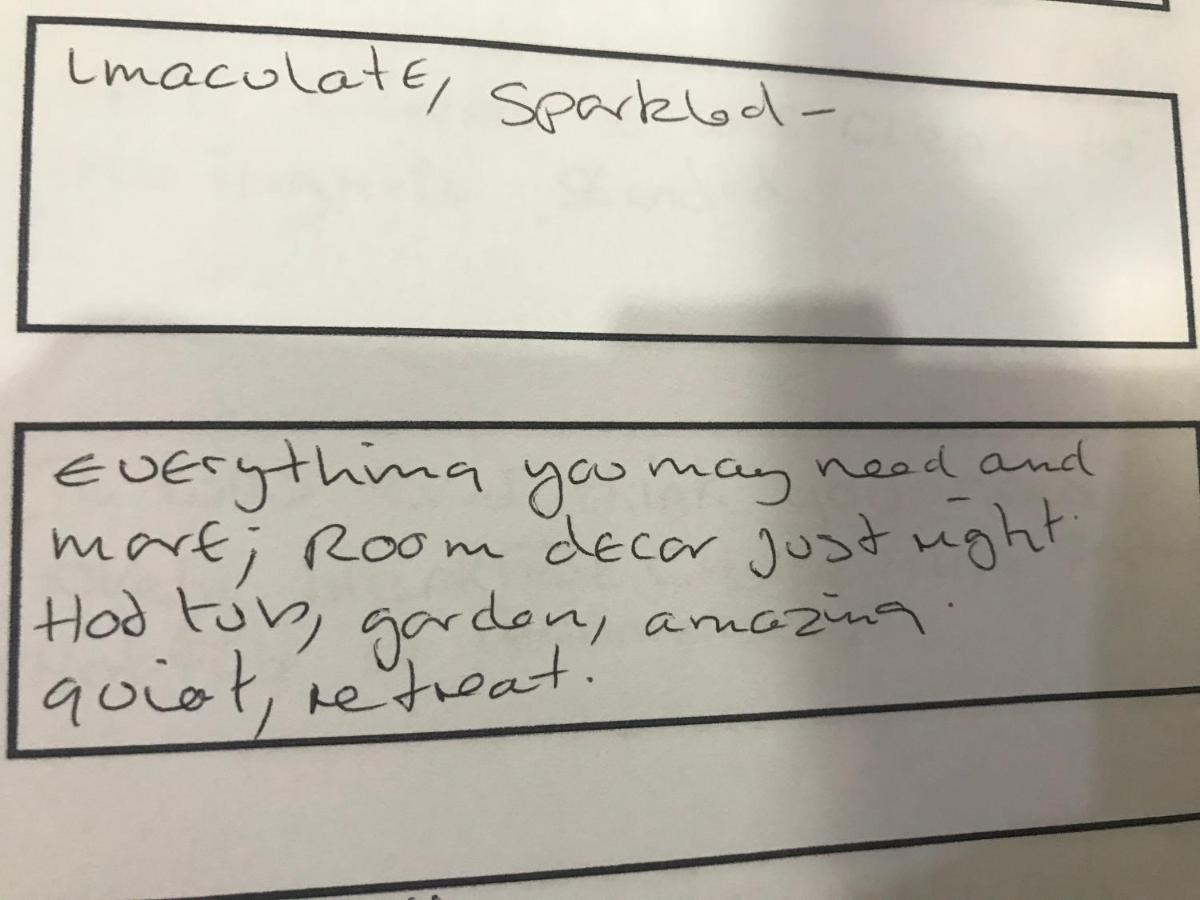 Imaculate, Sparkled -
Everything you may need and
more; Room decor just right.
Hot tub, garden, amazing.
quiet, retreat.